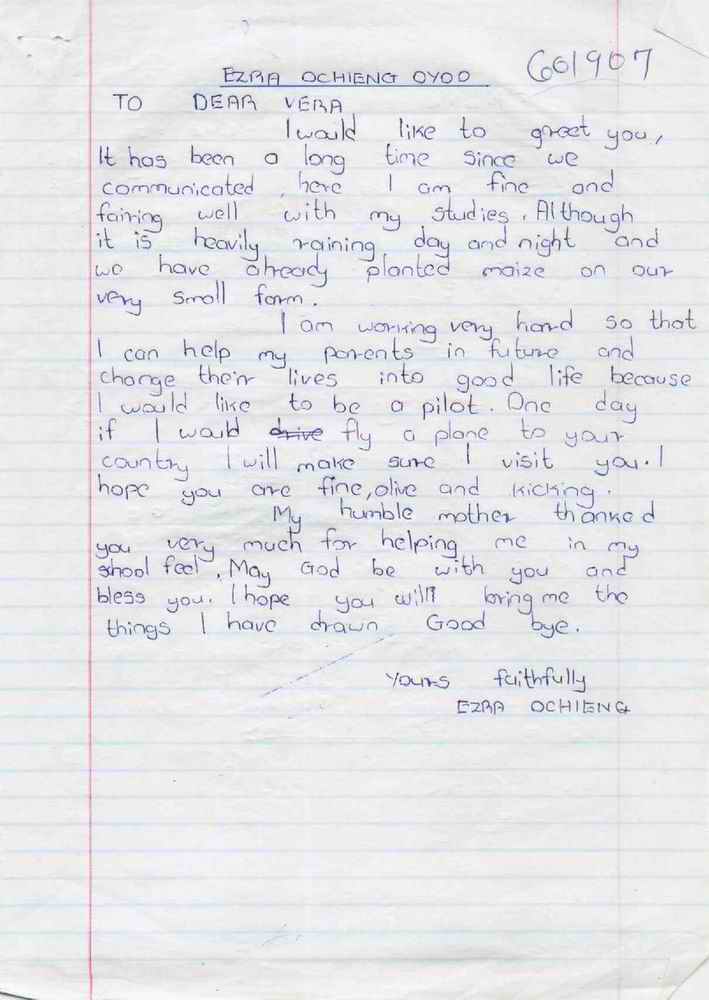 EZRA OCHIENG OYOO 661907
TO DEAR VERA
I would like to greet you,
It has been a long time since we
communicated, here I am fine and
fairing well with my studies. Although
it is heavily raining day and night and
we have already planted maize on our
very small farm.
I am working very hard so that
I can help my parents in future and
change their lives into good life because
I would like to be a pilot. One day
if I would drive fly a plane to your
country I will make sure I visit you. I
hope you are fine, alive and kicking.
My humble mother thanked
you very much for helping me in my
shool feel. May God be with you and
bless you. I hope you will bring me the
things I have drawn Good bye.
Yours faithfully
EZRA OCHIENG